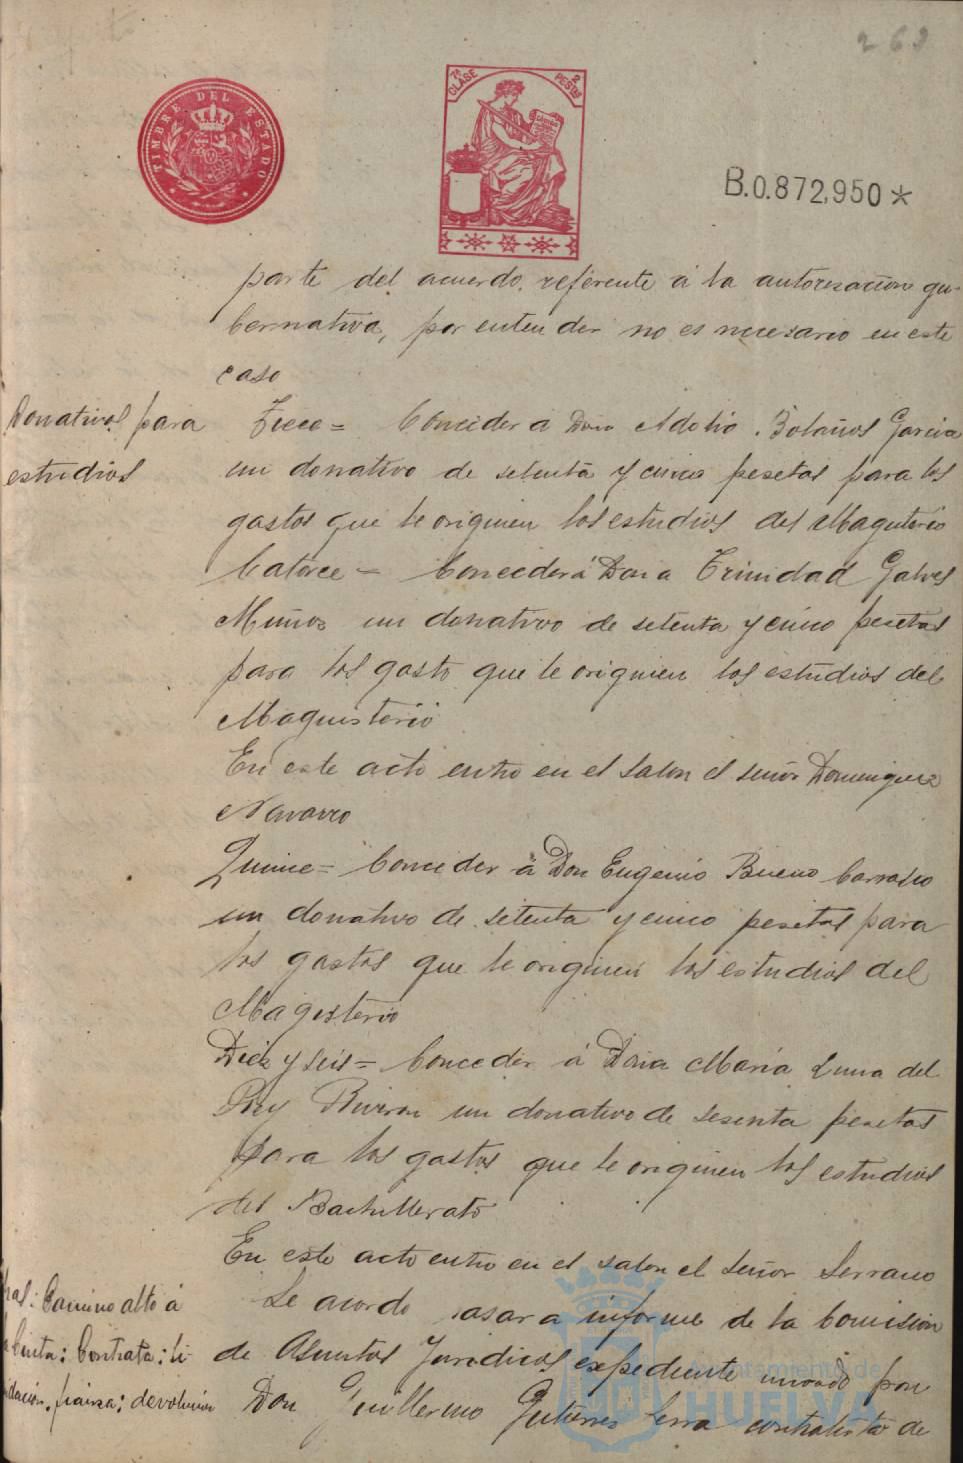 263
TIMBRE DEL ESTADO
7ª CLASE
2 PESETAS
B.0.872,950*
parte del acuerdo referente á la autorisacion gu-
bernativa, por entender no es necesario en este
caso
Donativos para
estudios
Trece = Conceder á Don Adolfo Bolaños Garcia
un donativo de setenta y cinco pesetas para los
gastos que le originen los estudios del Magisterio
Catorce = Conceder á Doña Trinidad Galvez
Muñoz un donativo de setenta y cinco pesetas
para los gasto que le originen los estudios del
Magisterio
En este acto entro en el salon el señor Dominguez
Navarro
Quince = Conceder á Don Eugenio Bueno Carrasco
un donativo de setenta y cinco pesetas para
los gastos que le originen los estudios del
Magisterio
Diez y seis = Conceder á Doña Maria Luna del
Rey un donativo de sesenta pesetas
para los gastos que le originen los estudios
del Bachillerato
En este acto entro en el salon el señor Serrano
Camino alto á
Cinta: Contrata: li-
fianza: devolucion
Se acordo pasar a informe de la Comision
de Asuntos Juridicos expediente incoado por
Don Guillermo Gutierrez Serra contratista de
Ayuntamiento de
HUELVA